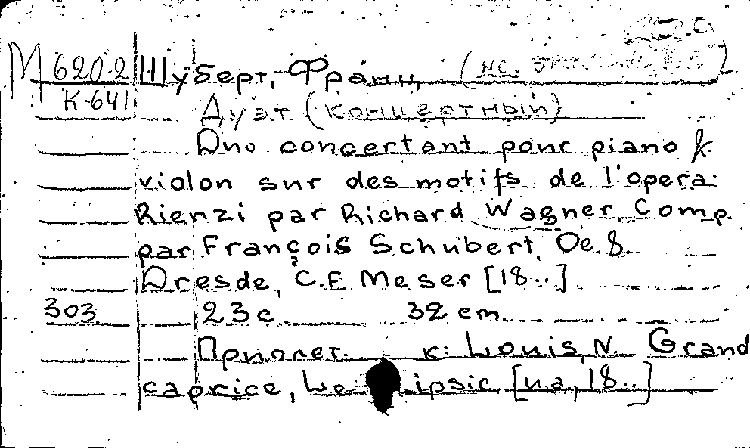 М 620-2 Шуберт, Франц (не
К-641 Дуэт (концертный)
Duo concertant pour piano &
violon sur des motifs de l'opera
Rienzi par Richard Wagner. Comp.
par François Schubert, Oe. 8.
Dresde, C.F. Meser [18..]
303 23 c. 32 cm.
Приплет. к: Louis, N. Grand
caprice, Leipsic [и.а., 18..]